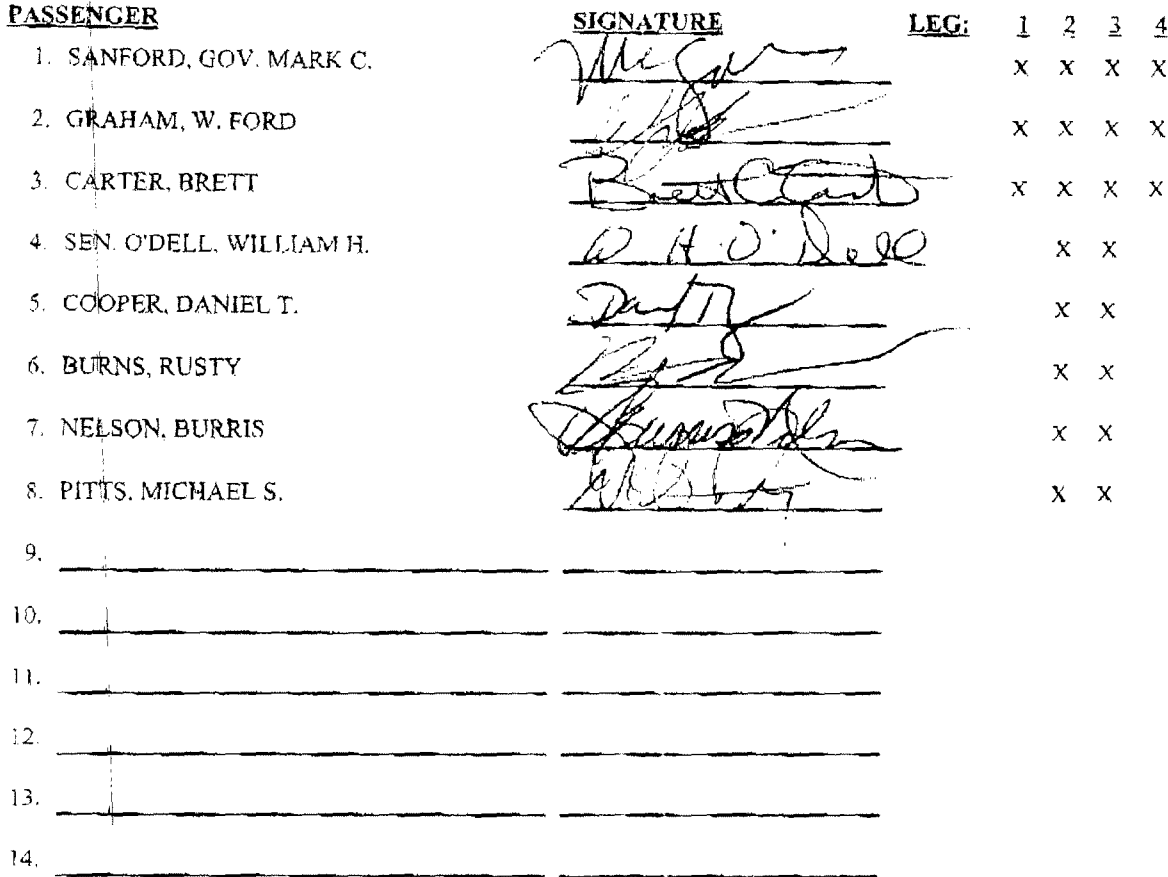 PASSENGER SIGNATURE LEG: 1 2 3 4
1. SANFORD, GOV. MARK C. X X X X
2. GRAHAM, W. FORD X X X X
3. CARTER, BRETT Brett C Carter X X X X
4. SEN. O'DELL, WILLIAM H. W H O'Dell X X
5. COOPER, DANIEL T. X X
6. BURNS, RUSTY X X
7. NELSON, BURRIS Burriss Nelson X X
8. PITTS, MICHAEL S. X X
9.
10.
11.
12.
13.
14.